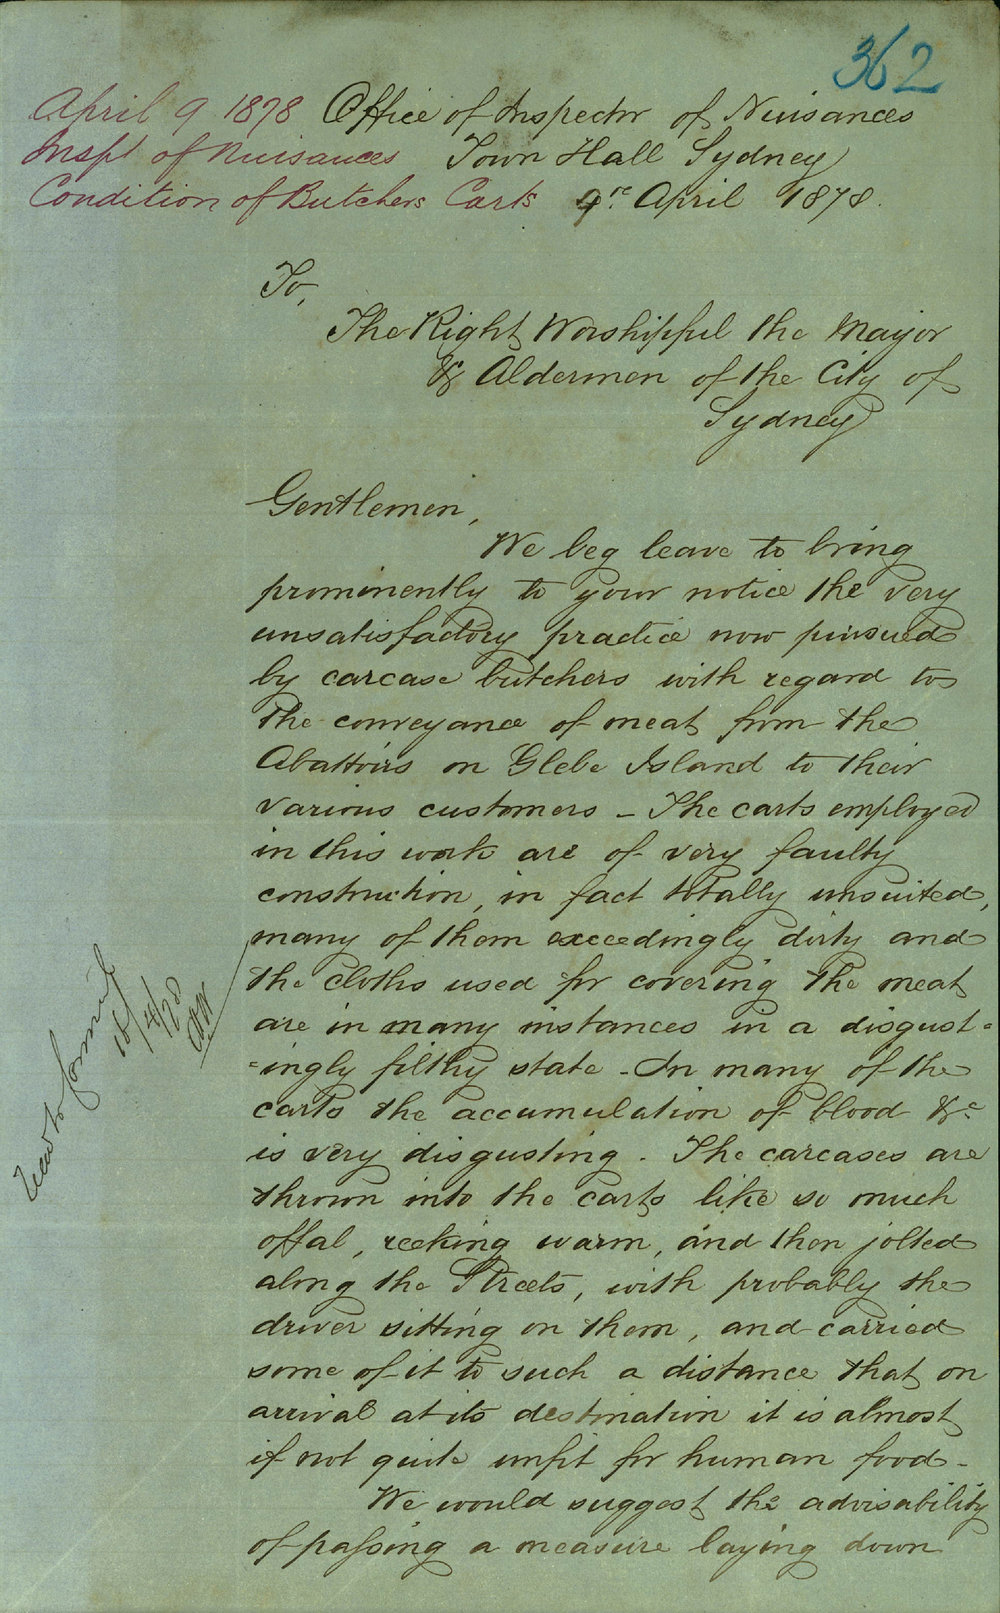 362
April 9 1878
Inspt of Nuisances
Condition of Butchers Carts
Office of Inspector of Nuisances
Town Hall Sydney
April 1878.
To,
The Right Worshipful the Mayor
& Aldermen of the City of
Sydney
Gentlemen,
We beg leave to bring
prominently to your notice the very
unsatisfactory practice now pursued
by carcase butchers with regard to
the conveyance of meat from the
Abattoirs on Glebe Island to their
various customers - The carts employed
in this work are of very faulty
construction, in fact totally unsuited,
many of them exceedingly dirty and
the cloths used for covering the meat
are in many instances in a disgust=
=ingly filthy state - In many of the
carts the accumulation of blood &c
is very disgusting. The carcases are
thrown into the carts like so much
offal, reeking warm, and then jolted
along the Streets, with probably the
driver sitting on them, and carried
some of it to such a distance that on
arrival at its destination it is almost
if not quite unfit for human food -
We would suggest the advisability
of passing a measure laying down
18/4/78